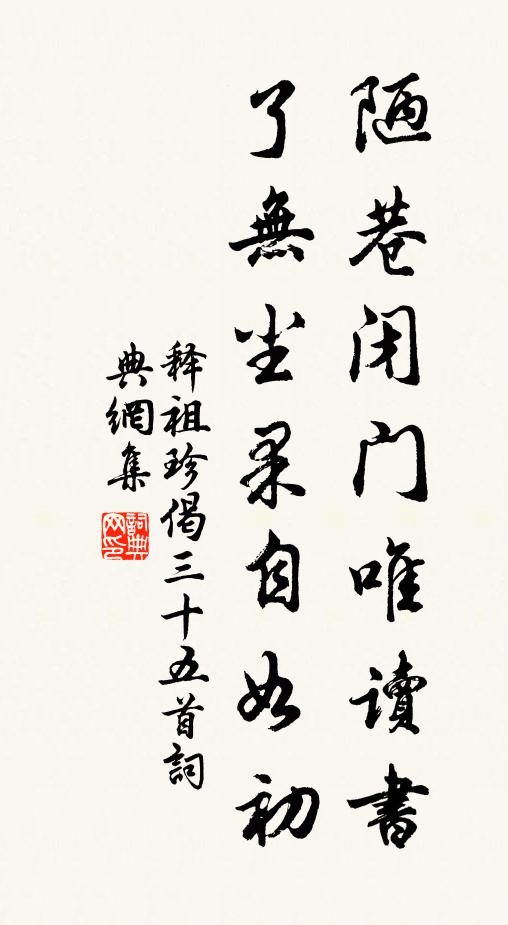 陋巷闭门唯讀書
了無尘累自如初
释祖珍偈三十五首詞
典網集
詞典网印